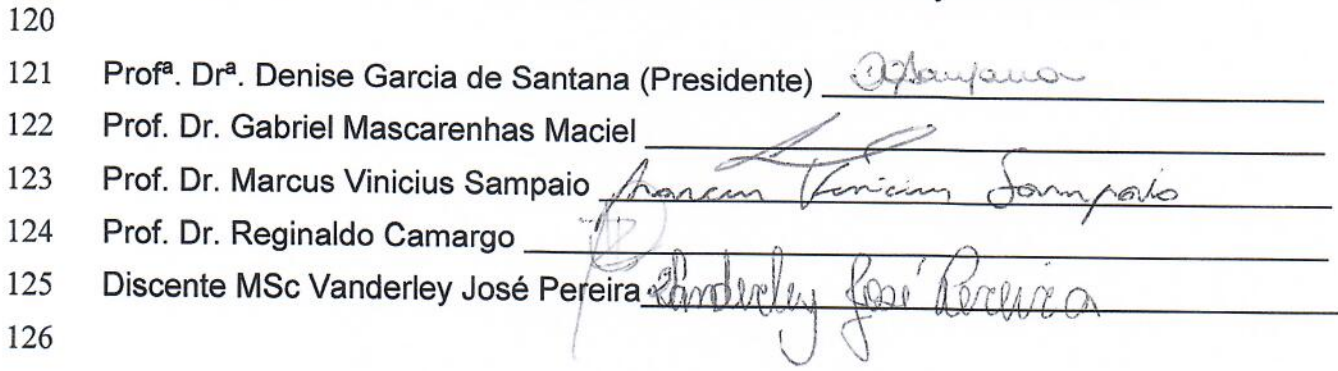 120
121 Profª. Drª. Denise Garcia de Santana (Presidente) DGSantana
122 Prof. Dr. Gabriel Mascarenhas Maciel
123 Prof. Dr. Marcus Vinicius Sampaio Marcus Vinicius Sampaio
124 Prof. Dr. Reginaldo Camargo
125 Discente MSc Vanderley José Pereira Vanderley José Pereira
126